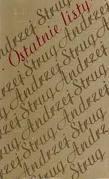 Ostatnie listy
Andrzej Strug
Andrzej Strug
Andrzej Strug
Andrzej Strug
Andrzej Strug
Andrzej Strug
Andrzej Strug